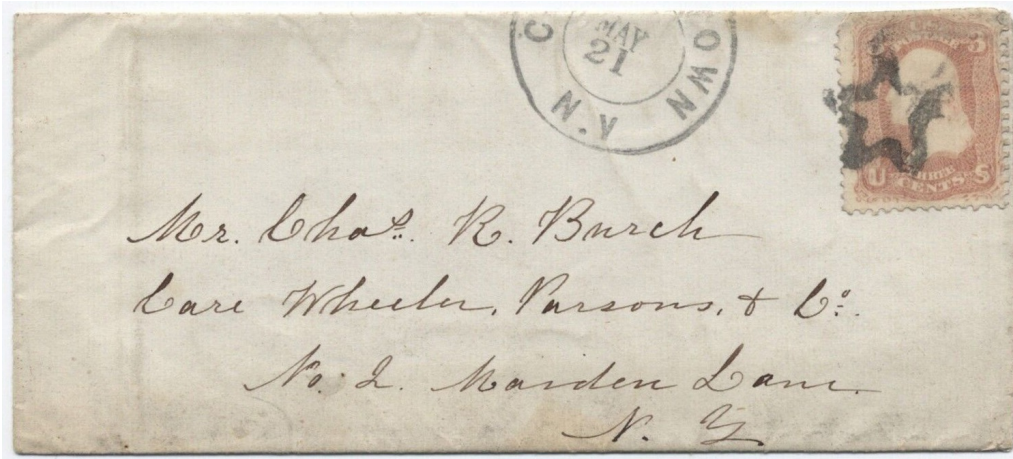 MAY
21
N.Y
U CENTS S
Mr. Chas. R. Burch
Care Wheeler, Parsons, & Co.
No. 2. Maiden Lane.
N. Y